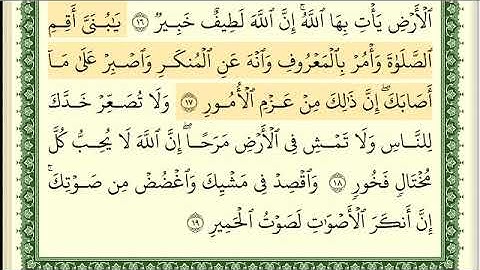 ٱلْأَرْضِ يَأْتِ بِهَا ٱللَّهُ ۚ إِنَّ ٱللَّهَ لَطِيفٌ خَبِيرٌ ١٦ يَـٰبُنَىَّ أَقِمِ
ٱلصَّلَوٰةَ وَأْمُرْ بِٱلْمَعْرُوفِ وَٱنْهَ عَنِ ٱلْمُنكَرِ وَٱصْبِرْ عَلَىٰ مَآ
أَصَابَكَ ۖ إِنَّ ذَٰلِكَ مِنْ عَزْمِ ٱلْأُمُورِ ١٧ وَلَا تُصَعِّرْ خَدَّكَ
لِلنَّاسِ وَلَا تَمْشِ فِى ٱلْأَرْضِ مَرَحًا ۖ إِنَّ ٱللَّهَ لَا يُحِبُّ كُلَّ
مُخْتَالٍ فَخُورٍ ١٨ وَٱقْصِدْ فِى مَشْيِكَ وَٱغْضُضْ مِن صَوْتِكَ ۚ
إِنَّ أَنكَرَ ٱلْأَصْوَٰتِ لَصَوْتُ ٱلْحَمِيرِ ١٩